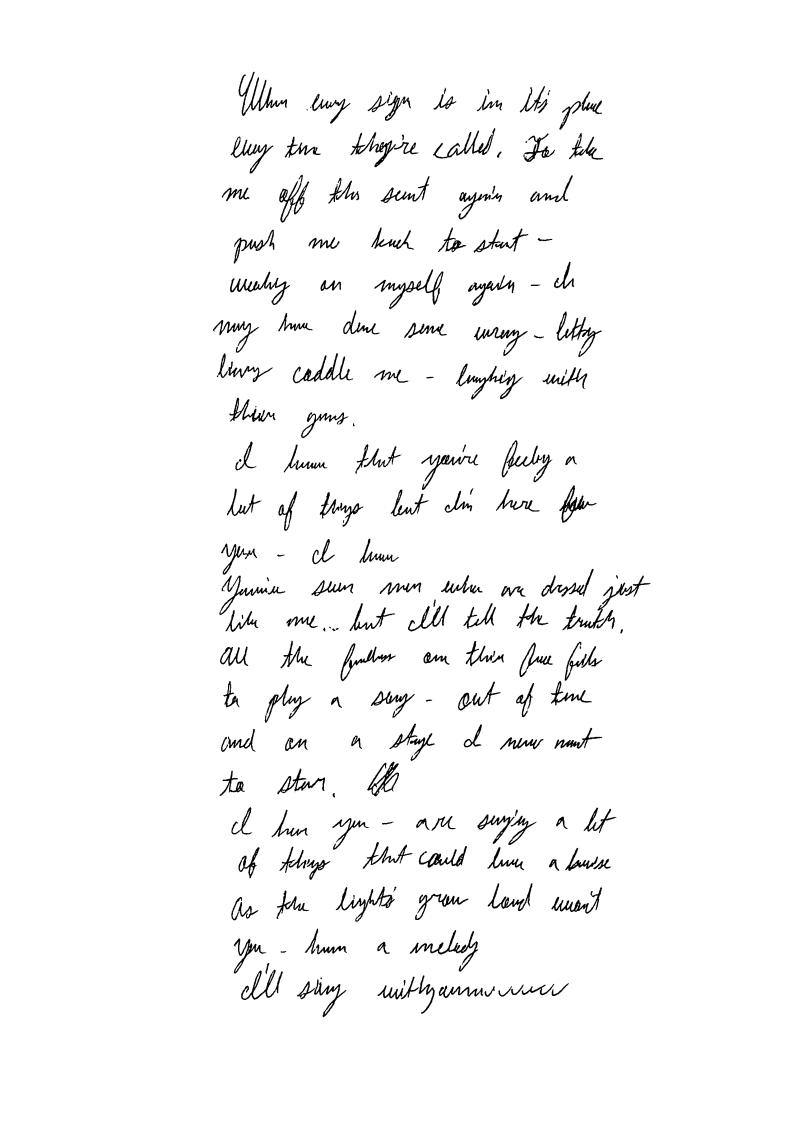 When every sign is in it's place
every time they're called. To take
me off this scent again and
push me back to start –
waiting on myself again – I
may have done some wrong – letting
living coddle me – laughing with
their guns.
I know that you're feeling a
lot of things but I'm here
you – I know
seen men who are dressed just
like me... but I'll tell the truth.
All the on this face fails
to play a song – out of time
and on a stage I never want
to star.
I hear you – are singing a lot
of things that could have a
As the lights grow loud won't
you – hum a melody
I'll sing with